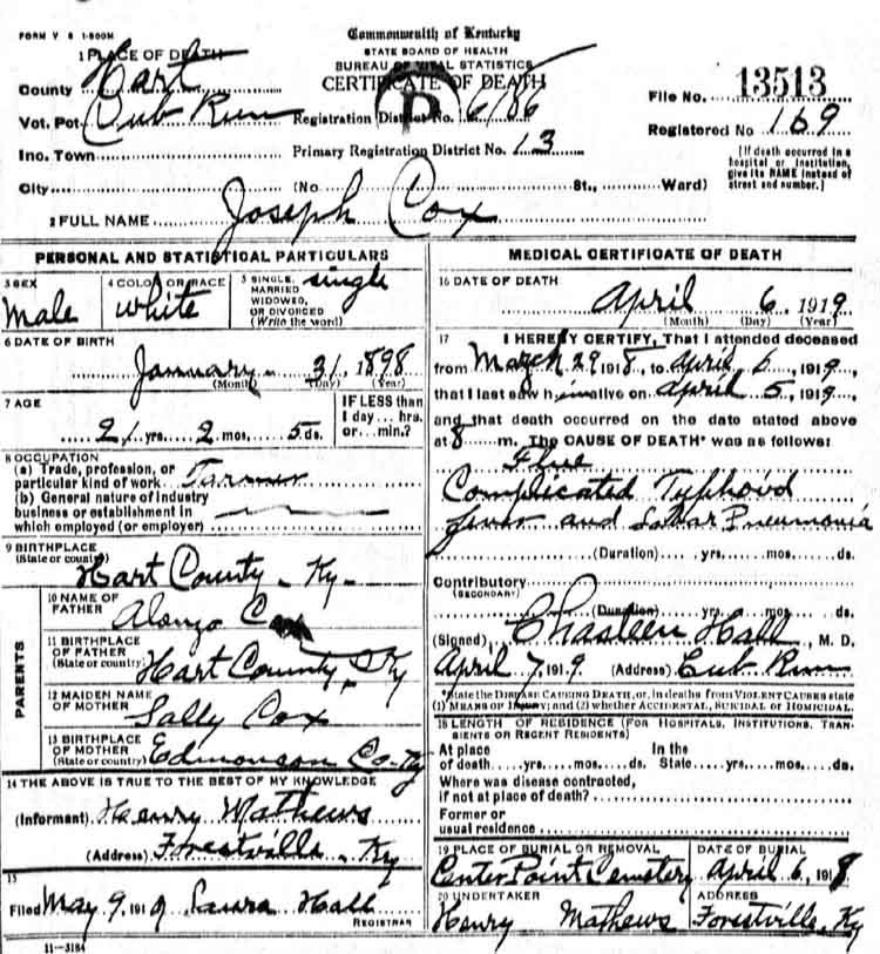 FORM V S 1-500M
Commonwealth of Kentucky
STATE BOARD OF HEALTH
BUREAU OF VITAL STATISTICS
CERTIFICATE OF DEATH
1 PLACE OF DEATH
County Hart
Vot. Pct. Cub Run
Registration District No. 6186
File No. 13513
Registered No 169
Ino. Town
Primary Registration District No. 13
[If death occurred in a
hospital or institution,
give its NAME instead of
street and number.]
City (No St., Ward)
2 FULL NAME Joseph Cox
PERSONAL AND STATISTICAL PARTICULARS
3 SEX
Male
4 COLOR OR RACE
white
5 SINGLE, single
MARRIED
WIDOWED,
OR DIVORCED
(Write the word)
6 DATE OF BIRTH
January 31, 1898
(Month) (Day) (Year)
7 AGE
21 yrs. 2 mos. 5 ds.
IF LESS than
1 day... hrs.
or... min.?
8 OCCUPATION
(a) Trade, profession, or
particular kind of work Farmer
(b) General nature of industry
business or establishment in
which employed (or employer)
9 BIRTHPLACE
(State or country)
Hart County - Ky-
PARENTS
10 NAME OF
FATHER Alonzo Cox
11 BIRTHPLACE
OF FATHER
(State or country) Hart County, Ky
12 MAIDEN NAME
OF MOTHER Sally Cox
13 BIRTHPLACE
OF MOTHER
(State or country) Edmonson Co-Ky
14 THE ABOVE IS TRUE TO THE BEST OF MY KNOWLEDGE
(Informant) Henry Mathews
(Address) Forestville - Ky
15
Filed May 9, 1919 Laura Hall
REGISTRAR
11-3184
MEDICAL CERTIFICATE OF DEATH
16 DATE OF DEATH
April 6, 1919
(Month) (Day) (Year)
17 I HEREBY CERTIFY, That I attended deceased
from March 29 1918, to April 5, 1919,
that I last saw him alive on April 5, 1919,
and that death occurred on the date stated above
at 8 m. The CAUSE OF DEATH* was as follows:
Flue
Complicated Typhoid
fever and Lobar Pneumonia
(Duration) yrs. mos. ds.
Contributory
(SECONDARY)
(Duration) yrs. mos. ds.
(Signed) Chasteen Hall, M. D.
April 7, 1919. (Address) Cub Run
*State the DISEASE CAUSING DEATH, or, in deaths from VIOLENT CAUSES state
(1) MEANS OF INJURY; and (2) whether ACCIDENTAL, SUICIDAL or HOMICIDAL.
18 LENGTH OF RESIDENCE (FOR HOSPITALS, INSTITUTIONS, TRAN-
SIENTS OR RECENT RESIDENTS)
At place In the
of death yrs. mos. ds. State yrs. mos. ds.
Where was disease contracted,
if not at place of death?
Former or
usual residence
19 PLACE OF BURIAL OR REMOVAL
Center Point Cemetery
DATE OF BURIAL
April 6, 1918
20 UNDERTAKER
Henry Mathews
ADDRESS
Forestville, Ky